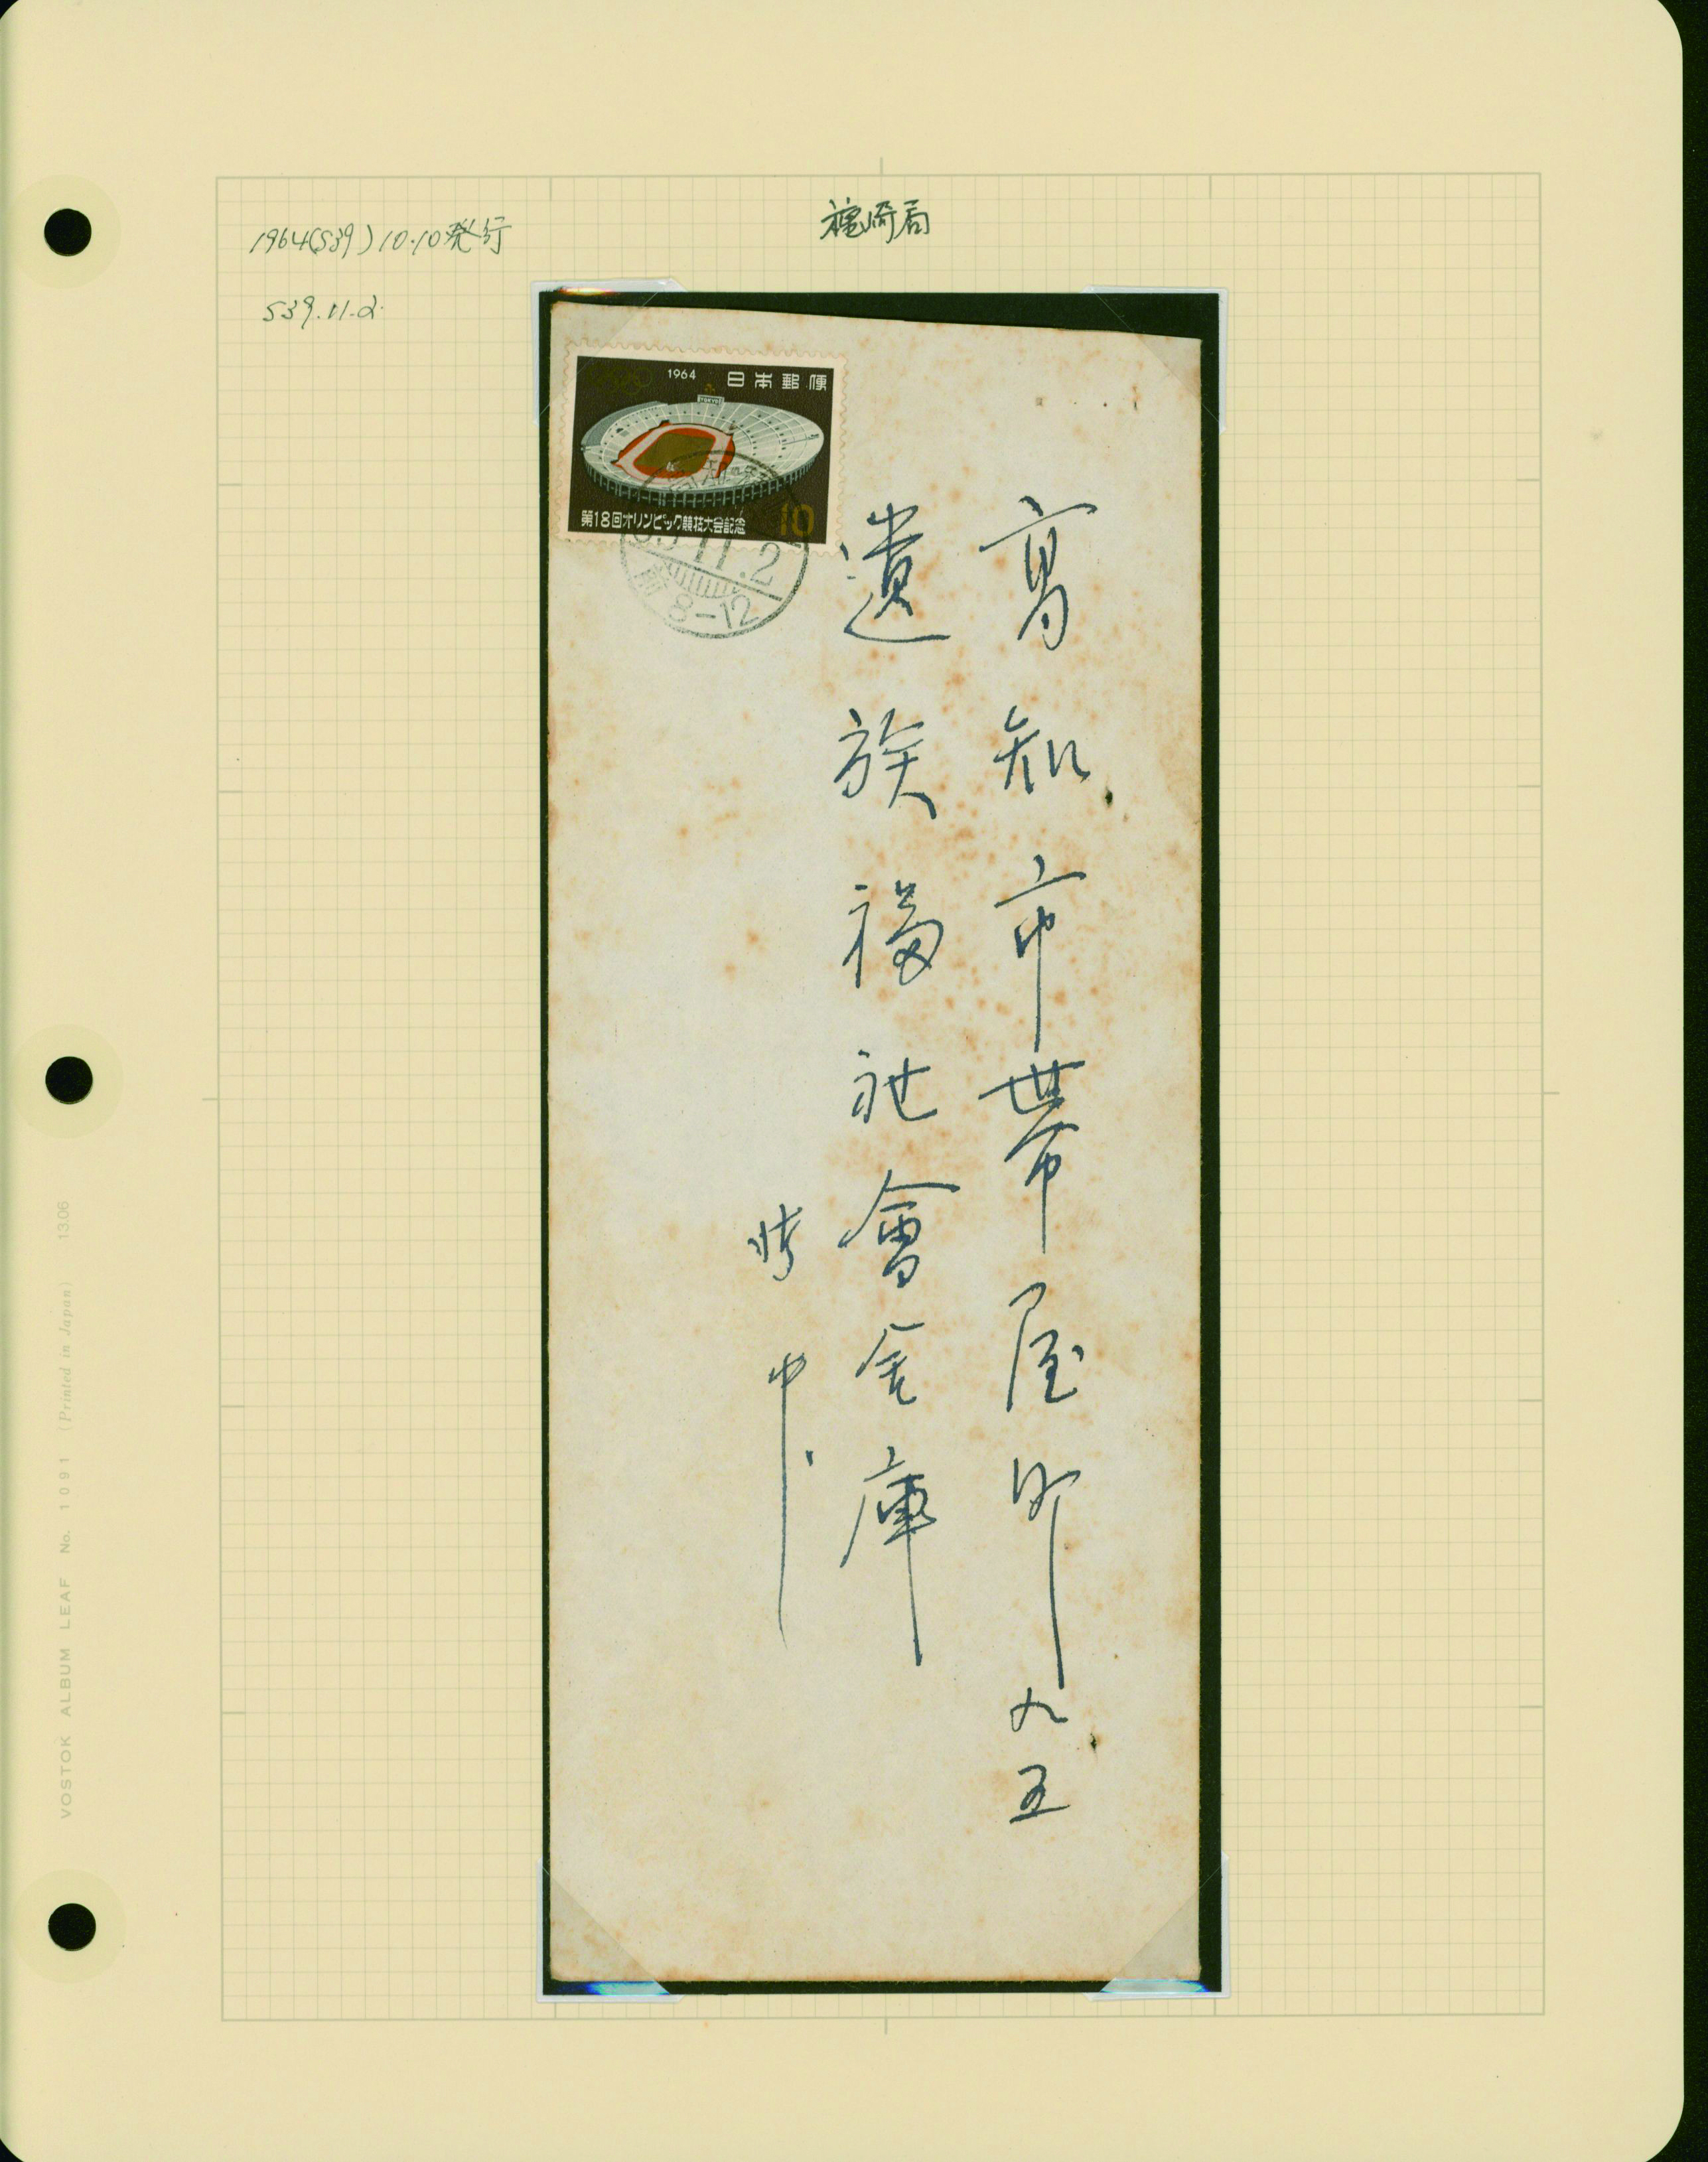 1964(S39)10.10発行
S39.11.2.
1964 日本郵便
TOKYO
第18回オリンピック競技大会記念 10
39.11.2
前8-12
高知市帯屋町九五
遺族福祉會金庫
中
VOSTOK ALBUM LEAF No. 1091 (Printed in Japan) 13.06